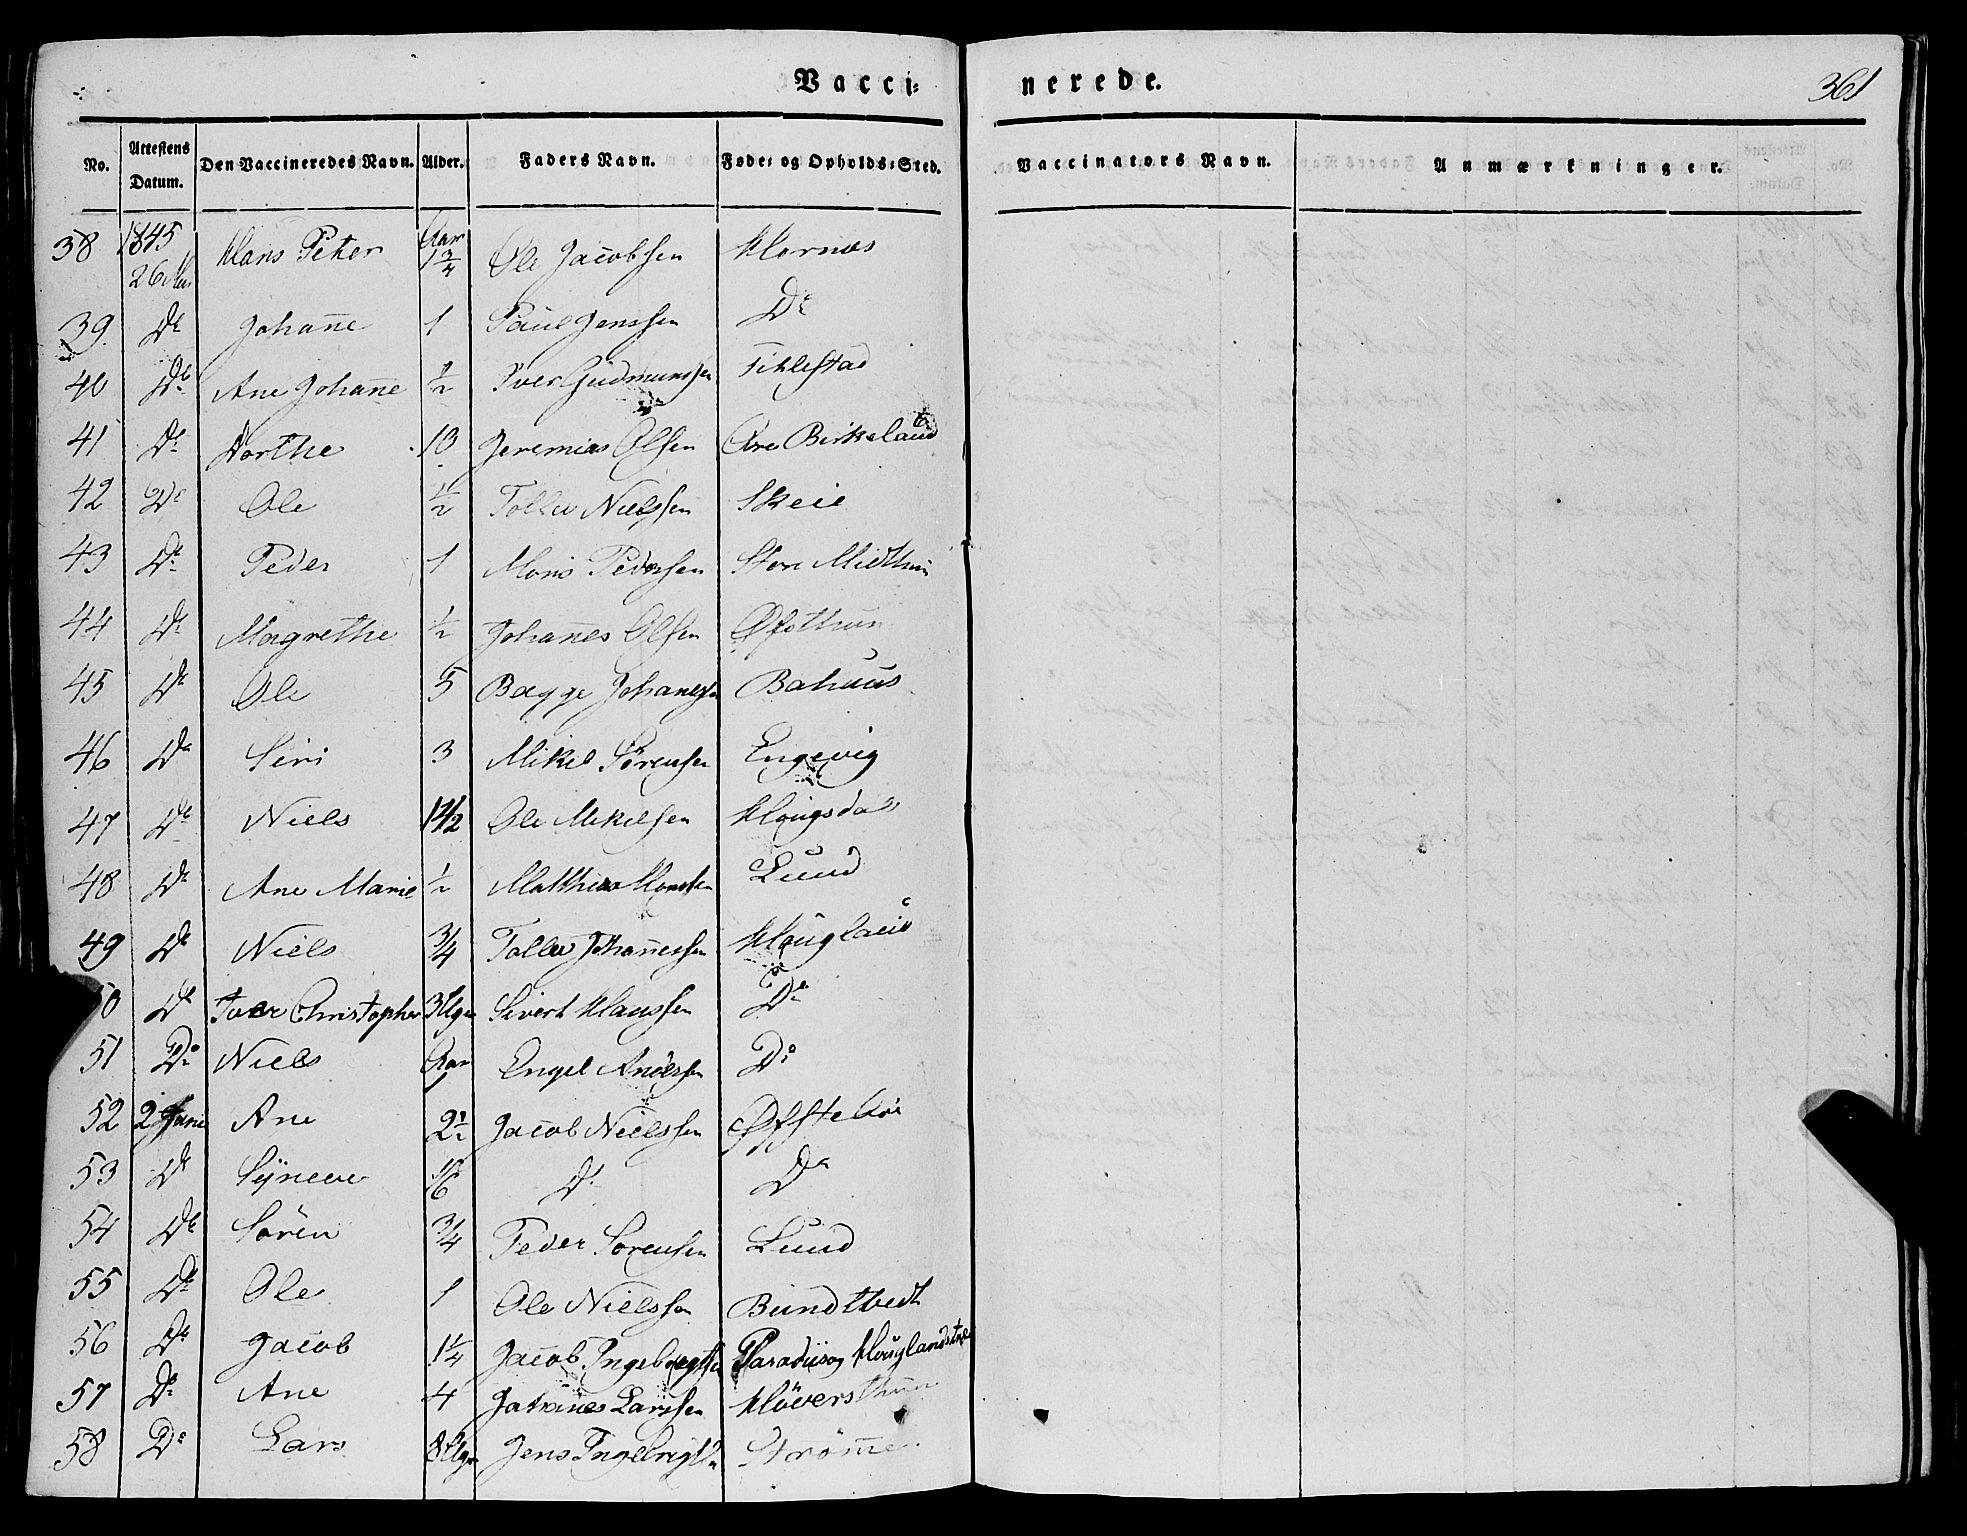 Vacci⸗
nerede.
361
No. Attestens Datum. Den Vaccineredes Navn. Alder. Faders Navn. Føde⸗ og Opholds⸗Sted. Vaccinators Navn. Anmærkninger.
38 1845 26 Mai Hans Peter Aar 1 3/4 Ole Jacobsen Hornæs
39. Do Johan̄e 1 Paul Jenssen Do
40 Do Ane Johan̄e 1/2 Iver Gudmunssen Tihlestad
41 Do Dorthe 10 Jeremias Olsen Øvre Birkeland
42 Do Ole 1/2 Tollu Nielssen Skeie
43 Do Peder 1 Mons Pedersen Store Midthun
44 Do Magrethe 1/2 Johan̄es Olsen Øfsthun
45 Do Ole 5 Bagge Johanessen Bahuus
46 Do Siri 3 Mikel Sörensen Engevig
47 Do Niels 1 1/2 Ole Mikelsen Hougsdal
48 Do Ane Marie 1/2 Matthias Monsen Lund
49 Do Niels 3/4 Tollu Johan̄essen Hougland
50 Do Iver Christopher 3 Ugr Sivert Hanssen Do
51 Do Niels Aar 1 Engel Anderssen Do
52 2 Juni Ane 2 1/2 Jacob Nielssen
53 Do Synneve Do Do
54 Do Sören 3/4 Peder Sorensen Lund
55 Do Ole 1 Ole Nielssen Bundtvedt
56 Do Jacob 1 1/4 Jacob Ingebregtsen Paradiis og
57 Do Ane 4 Larssen Höversthun
58 Do Lars 8 Ugr Jens Ingebrigtsn Ström̄e